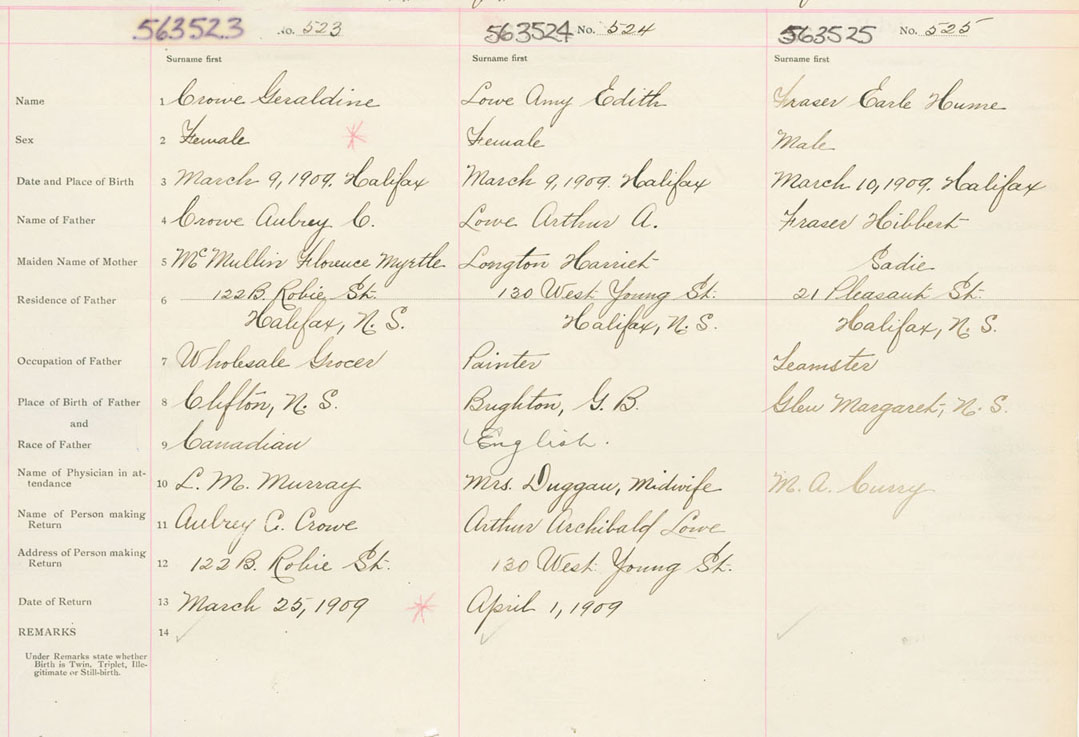 563523 No. 523 563524 No. 524 563525 No. 525
Surname first Surname first Surname first
Name 1 Crowe Geraldine Lowe Amy Edith Fraser Earle Hume
Sex 2 Female Female Male
Date and Place of Birth 3 March 9, 1909. Halifax March 9, 1909. Halifax March 10, 1909. Halifax
Name of Father 4 Crowe Aubrey C. Lowe Arthur A. Fraser Hibbert
Maiden Name of Mother 5 McMullin Florence Myrtle Longton Harriet Sadie
Residence of Father 6 122B. Robie St. 130 West Young St. 21 Pleasant St.
Halifax, N. S. Halifax, N. S. Halifax, N. S.
Occupation of Father 7 Wholesale Grocer Painter Teamster
Place of Birth of Father 8 Clifton, N. S. Brighton, G. B. Glen Margaret, N. S.
and
Race of Father 9 Canadian English.
Name of Physician in at-
tendance 10 L. M. Murray Mrs. Duggan, Midwife M. A. Curry
Name of Person making
Return 11 Aubrey C. Crowe Arthur Archibald Lowe
Address of Person making
Return 12 122B. Robie St. 130 West Young St.
Date of Return 13 March 25, 1909 April 1, 1909
REMARKS 14
Under Remarks state whether
Birth is Twin, Triplet, Ille-
gitimate or Still-birth.